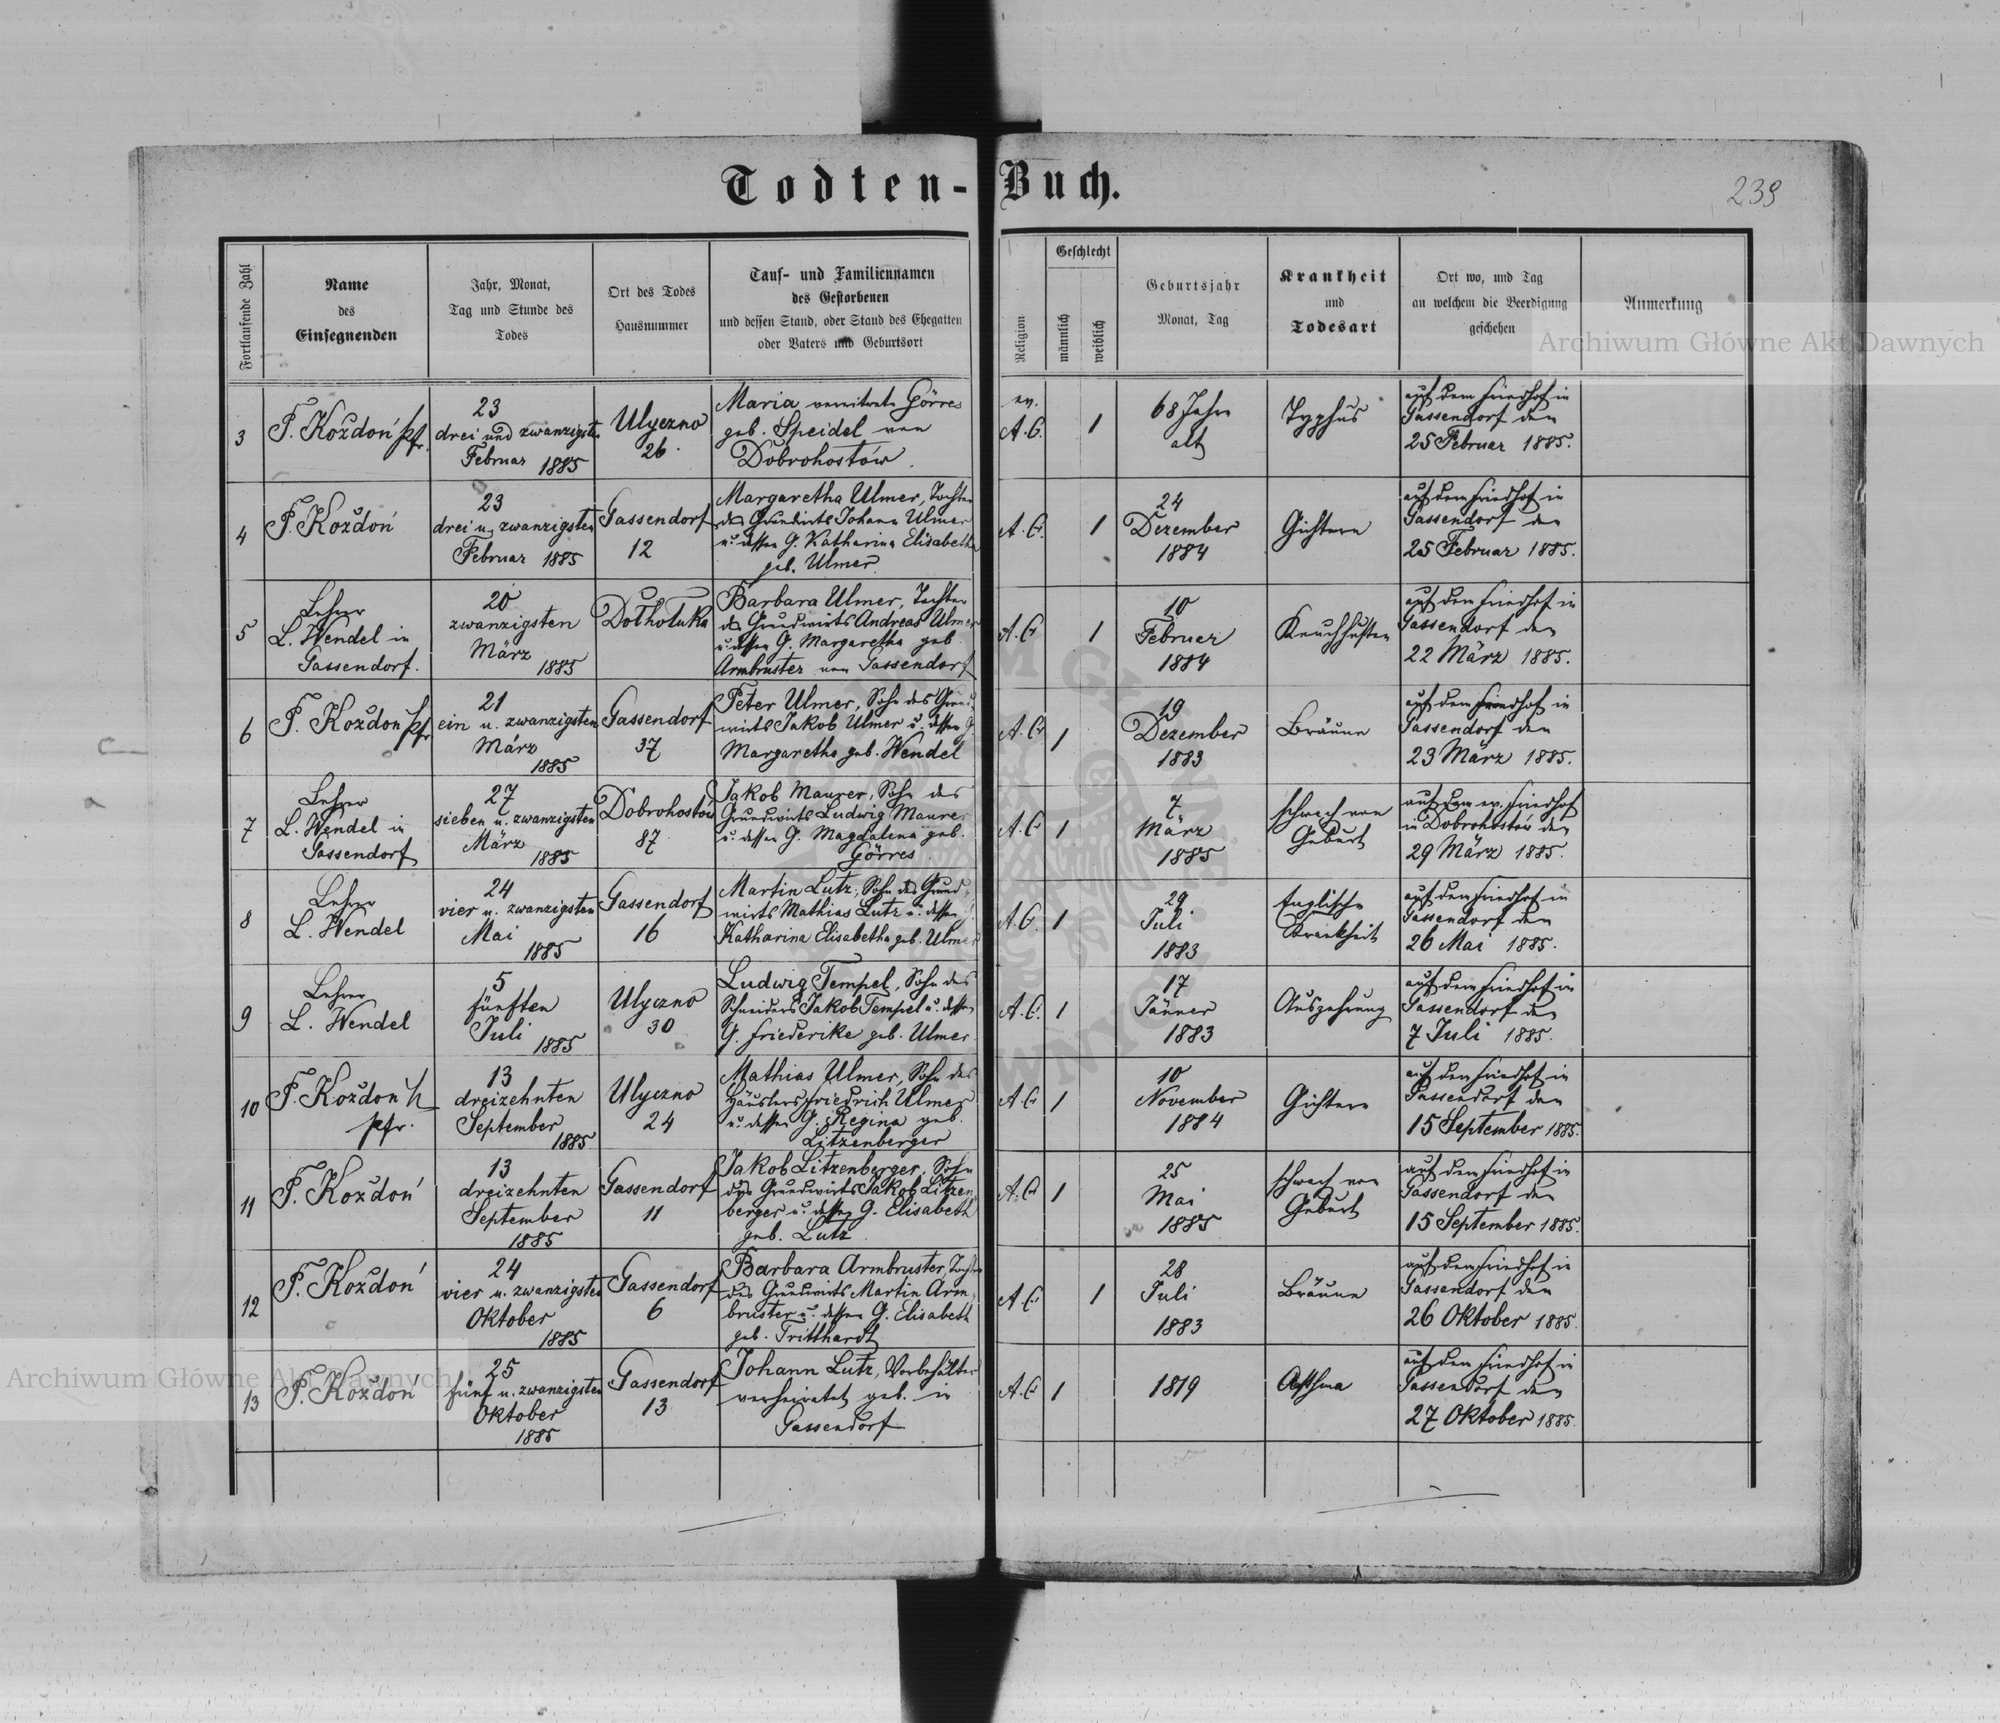 Todten-Buch.
239
Fortlaufende Zahl
Name
des
Einsegnenden
Jahr, Monat,
Tag und Stunde des
Todes
Ort des Todes
Hausnummer
Tauf- und Familiennamen
des Gestorbenen
und dessen Stand, oder Stand des Ehegatten
oder Vaters und Geburtsort
Religion
Geschlecht
männlich
weiblich
Geburtsjahr
Monat, Tag
Krankheit
und
Todesart
Ort wo, und Tag
an welchem die Beerdigung
geschehen
Anmerkung
3
F. Koždoń Pfr.
23
drei und zwanzigsten
Februar 1885
Ulyczno
26.
Maria verwitwete Görres
geb. Speidel von
Dobrohostów.
ev.
A. C.
1
68 Jahre
alt
Typhus
auf dem Friedhof in
Gassendorf den
25 Februar 1885.
4
F. Koždoń
23
drei u. zwanzigsten
Februar 1885
Gassendorf
12
Margaretha Ulmer, Tochter
des Grundwirts Johann Ulmer
u. dessen G. Katharina Elisabetha
geb. Ulmer.
A. C.
1
24
Dezember
1884
Gichtern
auf dem Friedhof in
Gassendorf den
25 Februar 1885.
5
Lehrer
L. Wendel in
Gassendorf.
20
zwanzigsten
März
1885
Dołhołuka
Barbara Ulmer, Tochter
des Grundwirts Andreas Ulmer
u. dessen G. Margaretha geb.
Armbruster von Gassendorf
A. C.
1
10
Februar
1884
Keuchhusten
auf dem Friedhof in
Gassendorf den
22 März 1885.
6
F. Koždoń Pfr
21
ein u. zwanzigsten
März
1885
Gassendorf
37
Peter Ulmer, Sohn des Grund-
wirts Jakob Ulmer u. dessen G.
Margaretha geb. Wendel
A. C.
1
19
Dezember
1883
Bräune
auf dem Friedhof in
Gassendorf den
23 März 1885.
7
Lehrer
L. Wendel in
Gassendorf
27
sieben u. zwanzigsten
März
1885
Dobrohostów
87
Jakob Maurer, Sohn des
Grundwirts Ludwig Maurer
u. dessen G. Magdalena geb.
Görres
A. C.
1
7
März
1885
schwach von
Geburt
auf dem ev. Friedhof
in Dobrohostów den
29 März 1885.
8
Lehrer
L. Wendel
24
vier u. zwanzigsten
Mai
1885
Gassendorf
16
Martin Lutz, Sohn des Grund-
wirts Mathias Lutz u. dessen G.
Katharina Elisabetha geb. Ulmer
A. C.
1
29
Juli
1883
Englische
Krankheit
auf dem Friedhof in
Gassendorf den
26 Mai 1885.
9
Lehrer
L. Wendel
5
fünften
Juli
1885
Ulyczno
30
Ludwig Tempel, Sohn des
Schneiders Jakob Tempel u. dessen
G. Friederike geb. Ulmer
A. C.
1
17
Jänner
1883
Auszehrung
auf dem Friedhof in
Gassendorf den
7 Juli 1885.
10
F. Koždoń
Pfr.
13
dreizehnten
September
1885
Ulyczno
24
Mathias Ulmer, Sohn des
Häuslers Friedrich Ulmer
u. dessen G. Regina geb.
Litzenberger
A. C.
1
10
November
1884
Gichtern
auf dem Friedhof in
Gassendorf den
15 September 1885.
11
F. Koždoń
13
dreizehnten
September
1885
Gassendorf
11
Jakob Litzenberger, Sohn
des Grundwirts Jakob Litzen-
berger u. dessen G. Elisabeth
geb. Lutz
A. C.
1
25
Mai
1885
schwach von
Geburt
auf dem Friedhof in
Gassendorf den
15 September 1885.
12
F. Koždoń
24
vier u. zwanzigsten
Oktober
1885
Gassendorf
6
Barbara Armbruster, Tochter
des Grundwirts Martin Arm-
bruster u. dessen G. Elisabeth
geb. Tritthardt
A. C.
1
28
Juli
1883
Bräune
auf dem Friedhof in
Gassendorf den
26 Oktober 1885.
13
F. Koždoń
25
fünf u. zwanzigsten
Oktober
1885
Gassendorf
13
Johann Lutz, Vorbehälter
verheiratet, geb. in
Gassendorf
A. C.
1
1819
Asthma
auf dem Friedhof in
Gassendorf den
27 Oktober 1885.
Archiwum Główne Akt Dawnych
Archiwum Główne Akt Dawnych